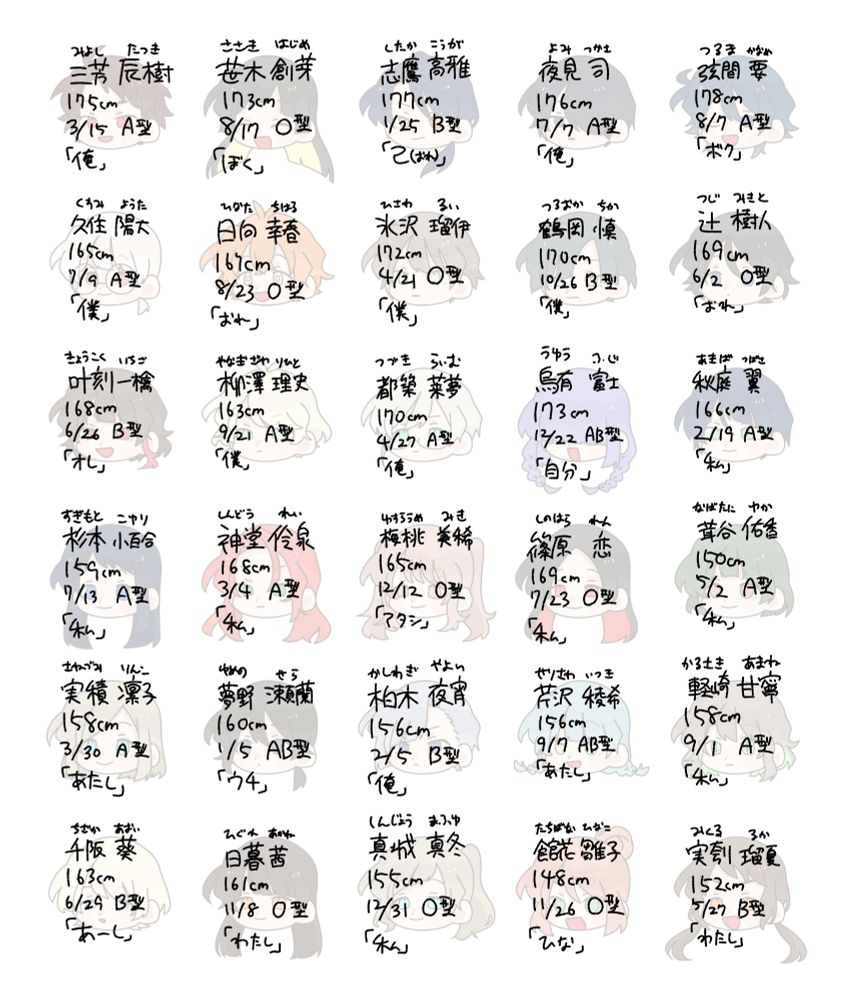 みよし たつき
三芳 辰樹
175cm
3/15 A型
「俺」
ささき はじめ
笹木 創芽
173cm
8/17 O型
「ぼく」
したか こうが
志鷹 高雅
177cm
1/25 B型
「己(おれ)」
よみ つかさ
夜見 司
176cm
7/7 A型
「俺」
つるま かなめ
弦間 要
178cm
8/7 A型
「ボク」
くすみ ようた
久住 陽太
165cm
7/9 A型
「僕」
ひなた ちはる
日向 幸春
167cm
8/23 O型
「おれ」
ひさわ るい
氷沢 瑠伊
172cm
4/21 O型
「僕」
つるおか ちか
鶴岡 慎
170cm
10/26 B型
「僕」
つじ みきと
辻 樹人
169cm
6/2 O型
「おれ」
きょうこく いちご
叶刻 一檎
168cm
6/26 B型
「オレ」
やなぎざわ りひと
柳澤 理史
163cm
9/21 A型
「僕」
つづき らいむ
都築 莱夢
170cm
4/27 A型
「俺」
うゆう ふじ
烏有 富士
173cm
12/22 AB型
「自分」
あきば つばさ
秋庭 翼
166cm
2/19 A型
「私」
すぎもと こゆり
杉本 小百合
159cm
7/13 A型
「私」
しんどう れい
神堂 伶泉
168cm
3/4 A型
「私」
ゆすらうめ みき
梅桃 美稀
165cm
12/12 O型
「アタシ」
しのはら れん
篠原 恋
169cm
7/23 O型
「私」
なばたに ゆか
茸谷 佑香
150cm
5/2 A型
「私」
さねづみ りんこ
実積 凛子
158cm
3/30 A型
「あたし」
ゆめの せら
夢野 瀬蘭
160cm
1/5 AB型
「ウチ」
かしわぎ やよい
柏木 夜宵
156cm
2/5 B型
「俺」
せりさわ いつき
芹沢 稜希
156cm
9/7 AB型
「あたし」
かるさき あまね
軽崎 甘寧
158cm
9/1 A型
「私」
ちさか あおい
千阪 葵
163cm
6/29 B型
「あーし」
ひぐれ あかね
日暮 茜
161cm
11/8 O型
「わたし」
しんじょう まふゆ
真城 真冬
155cm
12/31 O型
「私」
たちばな ひなこ
舘花 雛子
148cm
11/26 O型
「ひな」
みくる るか
実刳 瑠夏
152cm
5/27 B型
「わたし」